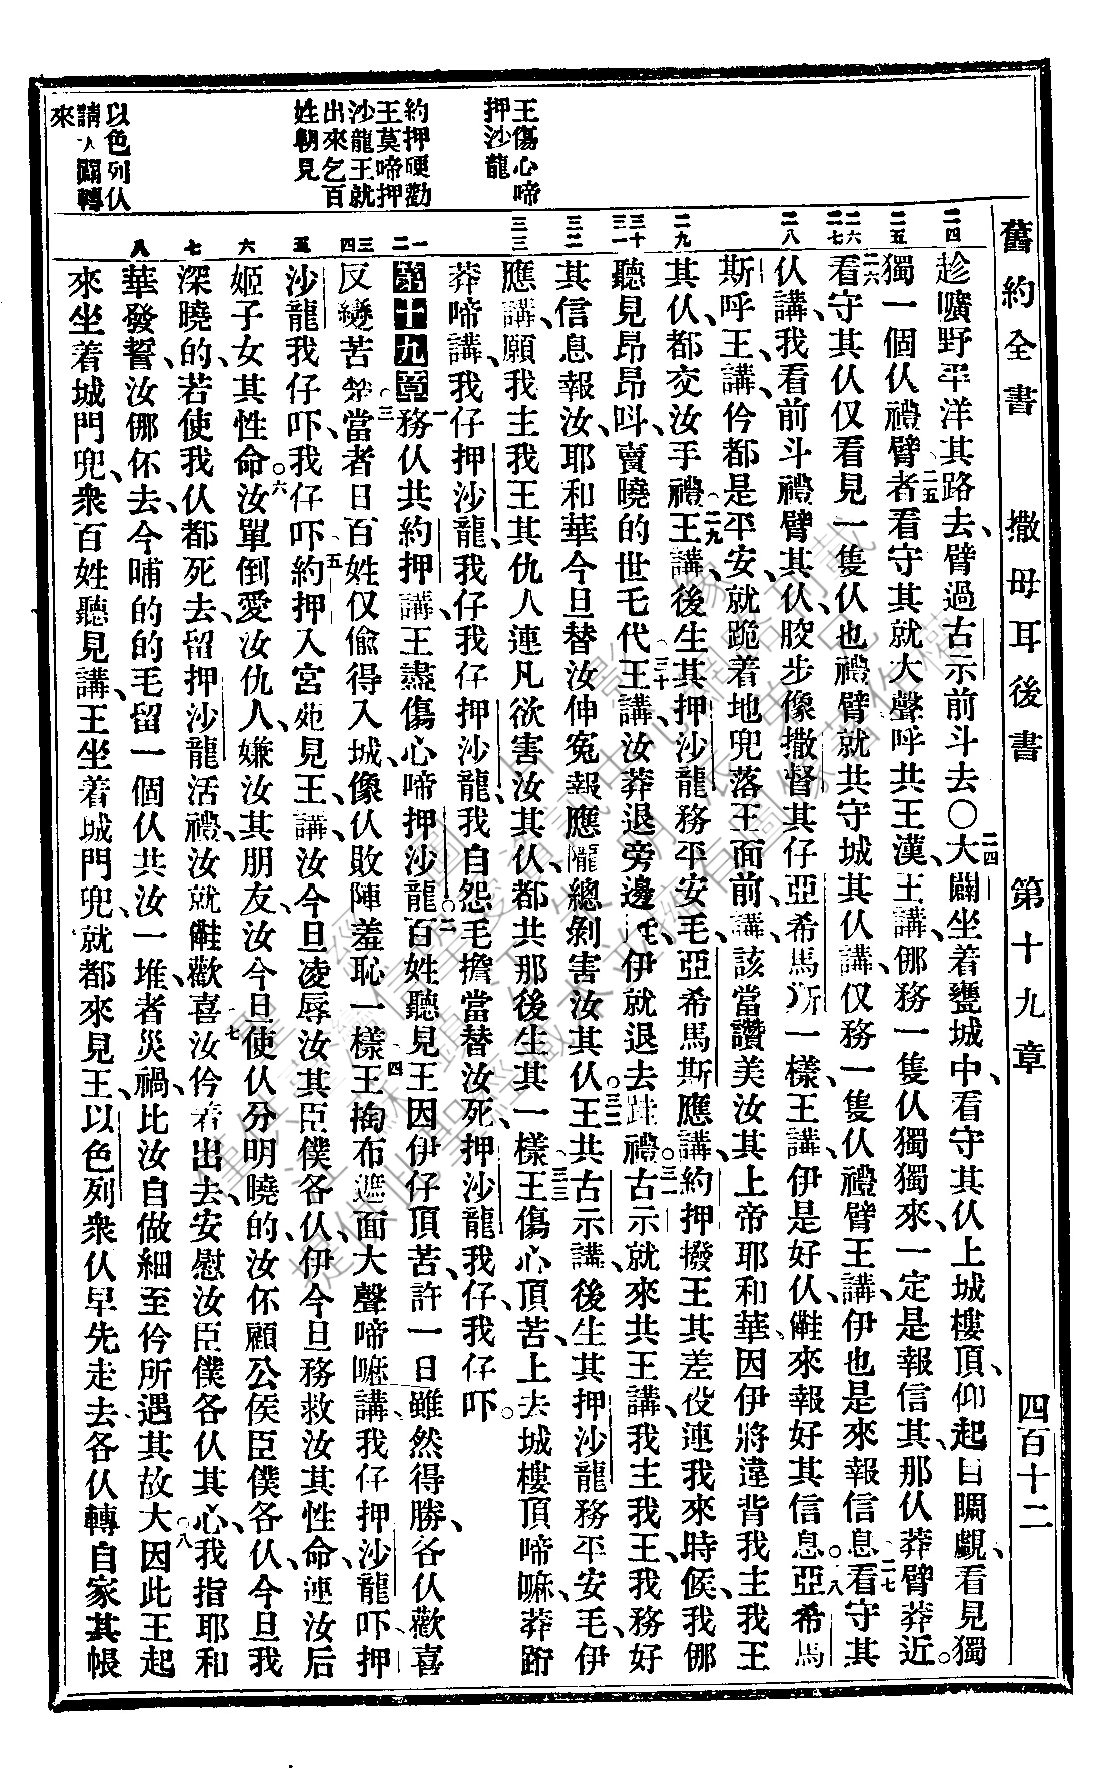 舊約全書 撒母耳後書 第十九章 四百十二
王傷心啼
押沙龍
約押硬勸
王莫啼押
沙龍王就
出來乞百
姓朝見
以色列仈
請大闢轉
來
二四 二五 二六 二七 二八 二九 三十 三一 三二 三三 一 二 三 四 五 六 七 八
趁曠野平洋其路去、臂過古示前斗去○二四大闢坐着甕城中、看守其仈上城樓頂、仰起目瞷覷、看見獨
獨一個仈禮臂者。二五看守其就大聲呼共王漢、王講、㑚務一隻仈獨獨來、一定是報信其、那仈莽臂莽近。
二六看守其仈仅看見一隻仈也禮臂、就共守城其仈講、仅務一隻仈禮臂、王講、伊也是來報信息。二七看守其
仈講、我看前斗禮臂其仈、骹步像撒督其仔亞希馬斯一樣、王講、伊是好仈、㒇來報好其信息。二八亞希馬
斯呼王、講、仱都是平安、就跪着地兜、落王面前、講、該當讚美汝其上帝耶和華、因伊將違背我主我王
其仈、都交汝手禮。二九王講、後生其押沙龍務平安毛、亞希馬斯應講、約押撥王其差役連我來時候、我㑚
聽見昂昂呌、賣曉的世毛代。三十王講、汝莽退旁邊𨂿、伊就退去𨂿禮。三一古示就來共王講、我主我王、我務好
其信息報汝、耶和華今旦替汝伸寃、報應攏總剝害汝其仈。三二王共古示講、後生其押沙龍務平安毛、伊
應講、願我主我王其仇人連凡欲害汝其仈、都共那後生其一樣。三三王傷心頂苦、上去城樓頂啼嘛、莽跲
莽啼講、我仔押沙龍、我仔我仔押沙龍、我自怨毛擔當替汝死、押沙龍我仔、我仔吓。
第十九章 一務仈共約押講、王盡傷心啼押沙龍。二百姓聽見王因伊仔頂苦、許一日雖然得勝、各仈歡喜
反變苦楚。三當者日百姓仅偸得入城、像仈敗陣羞恥一樣。四王掏布遮面大聲啼嘛、講、我仔押沙龍吓、押
沙龍我仔吓、我仔吓。五約押入宮苑見王、講、汝今旦凌辱汝其臣僕各仈、伊今旦務救汝其性命、連汝后
姬子女其性命。六汝單倒愛汝仇人、嫌汝其朋友、汝今旦使仈分明曉的、汝伓顧公侯臣僕各仈、今旦我
深曉的、若使我仈都死去、留押沙龍活禮、汝就㒇歡喜。七汝仱着出去、安慰汝臣僕各仈其心、我指耶和
華發誓、汝㑚伓去、今晡的的毛留一個仈共汝一堆、者災禍、比汝自做細至仱所遇其故大。八因此王起
來坐着城門兜、衆百姓聽見講、王坐着城門兜、就都來見王、以色列衆仈早先走去各仈轉自家其帳